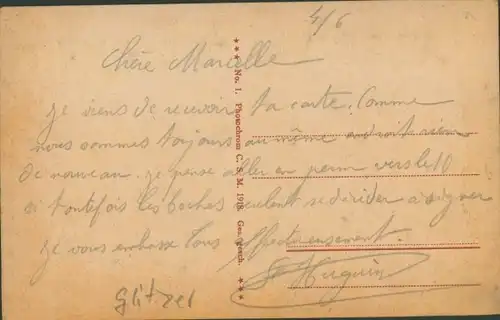 4/6
Chère Marcelle
je viens de recevoir ta carte. Comme
nous sommes toujours au même endroit rien
de nouveau. je pense aller en perm vers le 10
si toutefois les boches veulent se décider à signer
je vous embrasse tous affectueusement.
Huguin
glitzel
*** No. 1. Photochrom C. S. M. 1918. Ges. gesch. ***